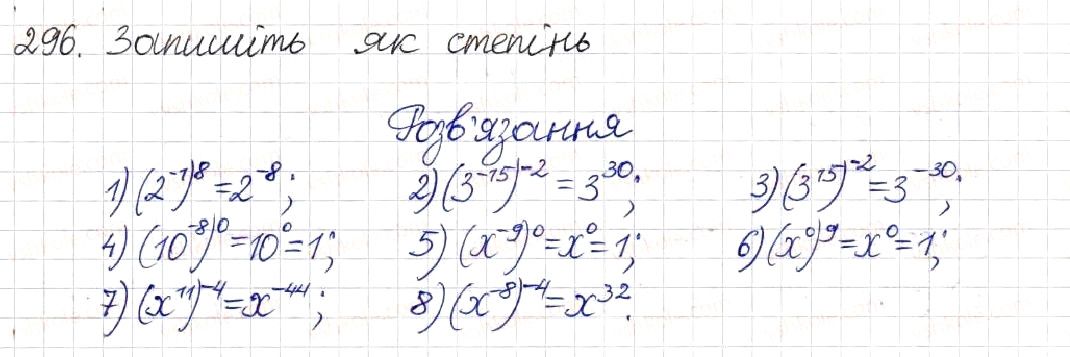 296. Запишіть як степінь
Розв'язання
1) (2⁻¹)⁸ = 2⁻⁸; 2) (3⁻¹⁵)⁻² = 3³⁰; 3) (3¹⁵)⁻² = 3⁻³⁰;
4) (10⁻⁸)⁰ = 10⁰ = 1; 5) (x⁻⁹)⁰ = x⁰ = 1; 6) (x⁰)⁹ = x⁰ = 1;
7) (x¹¹)⁻⁴ = x⁻⁴⁴; 8) (x⁻⁸)⁻⁴ = x³².